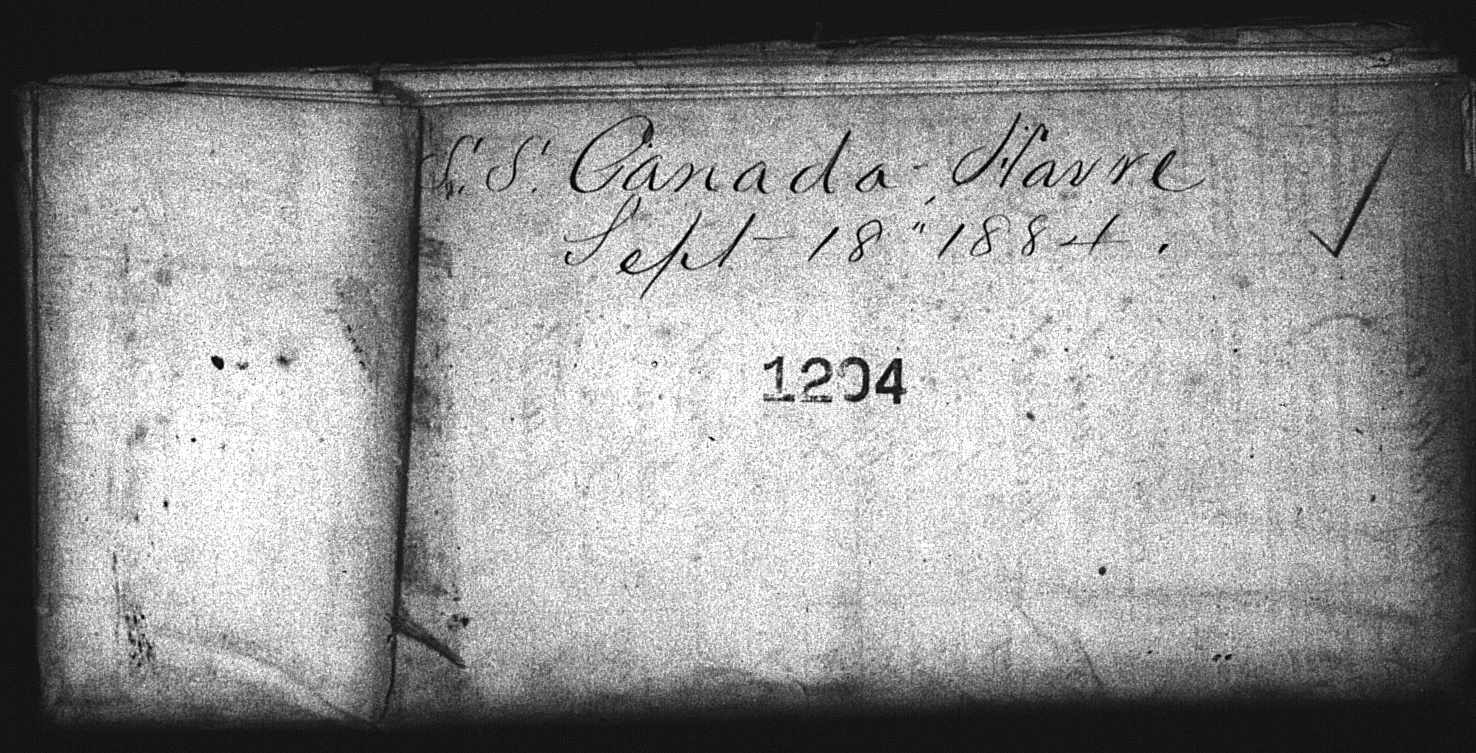 S.S. Canada - Havre
Sept - 18" 1884.
1204